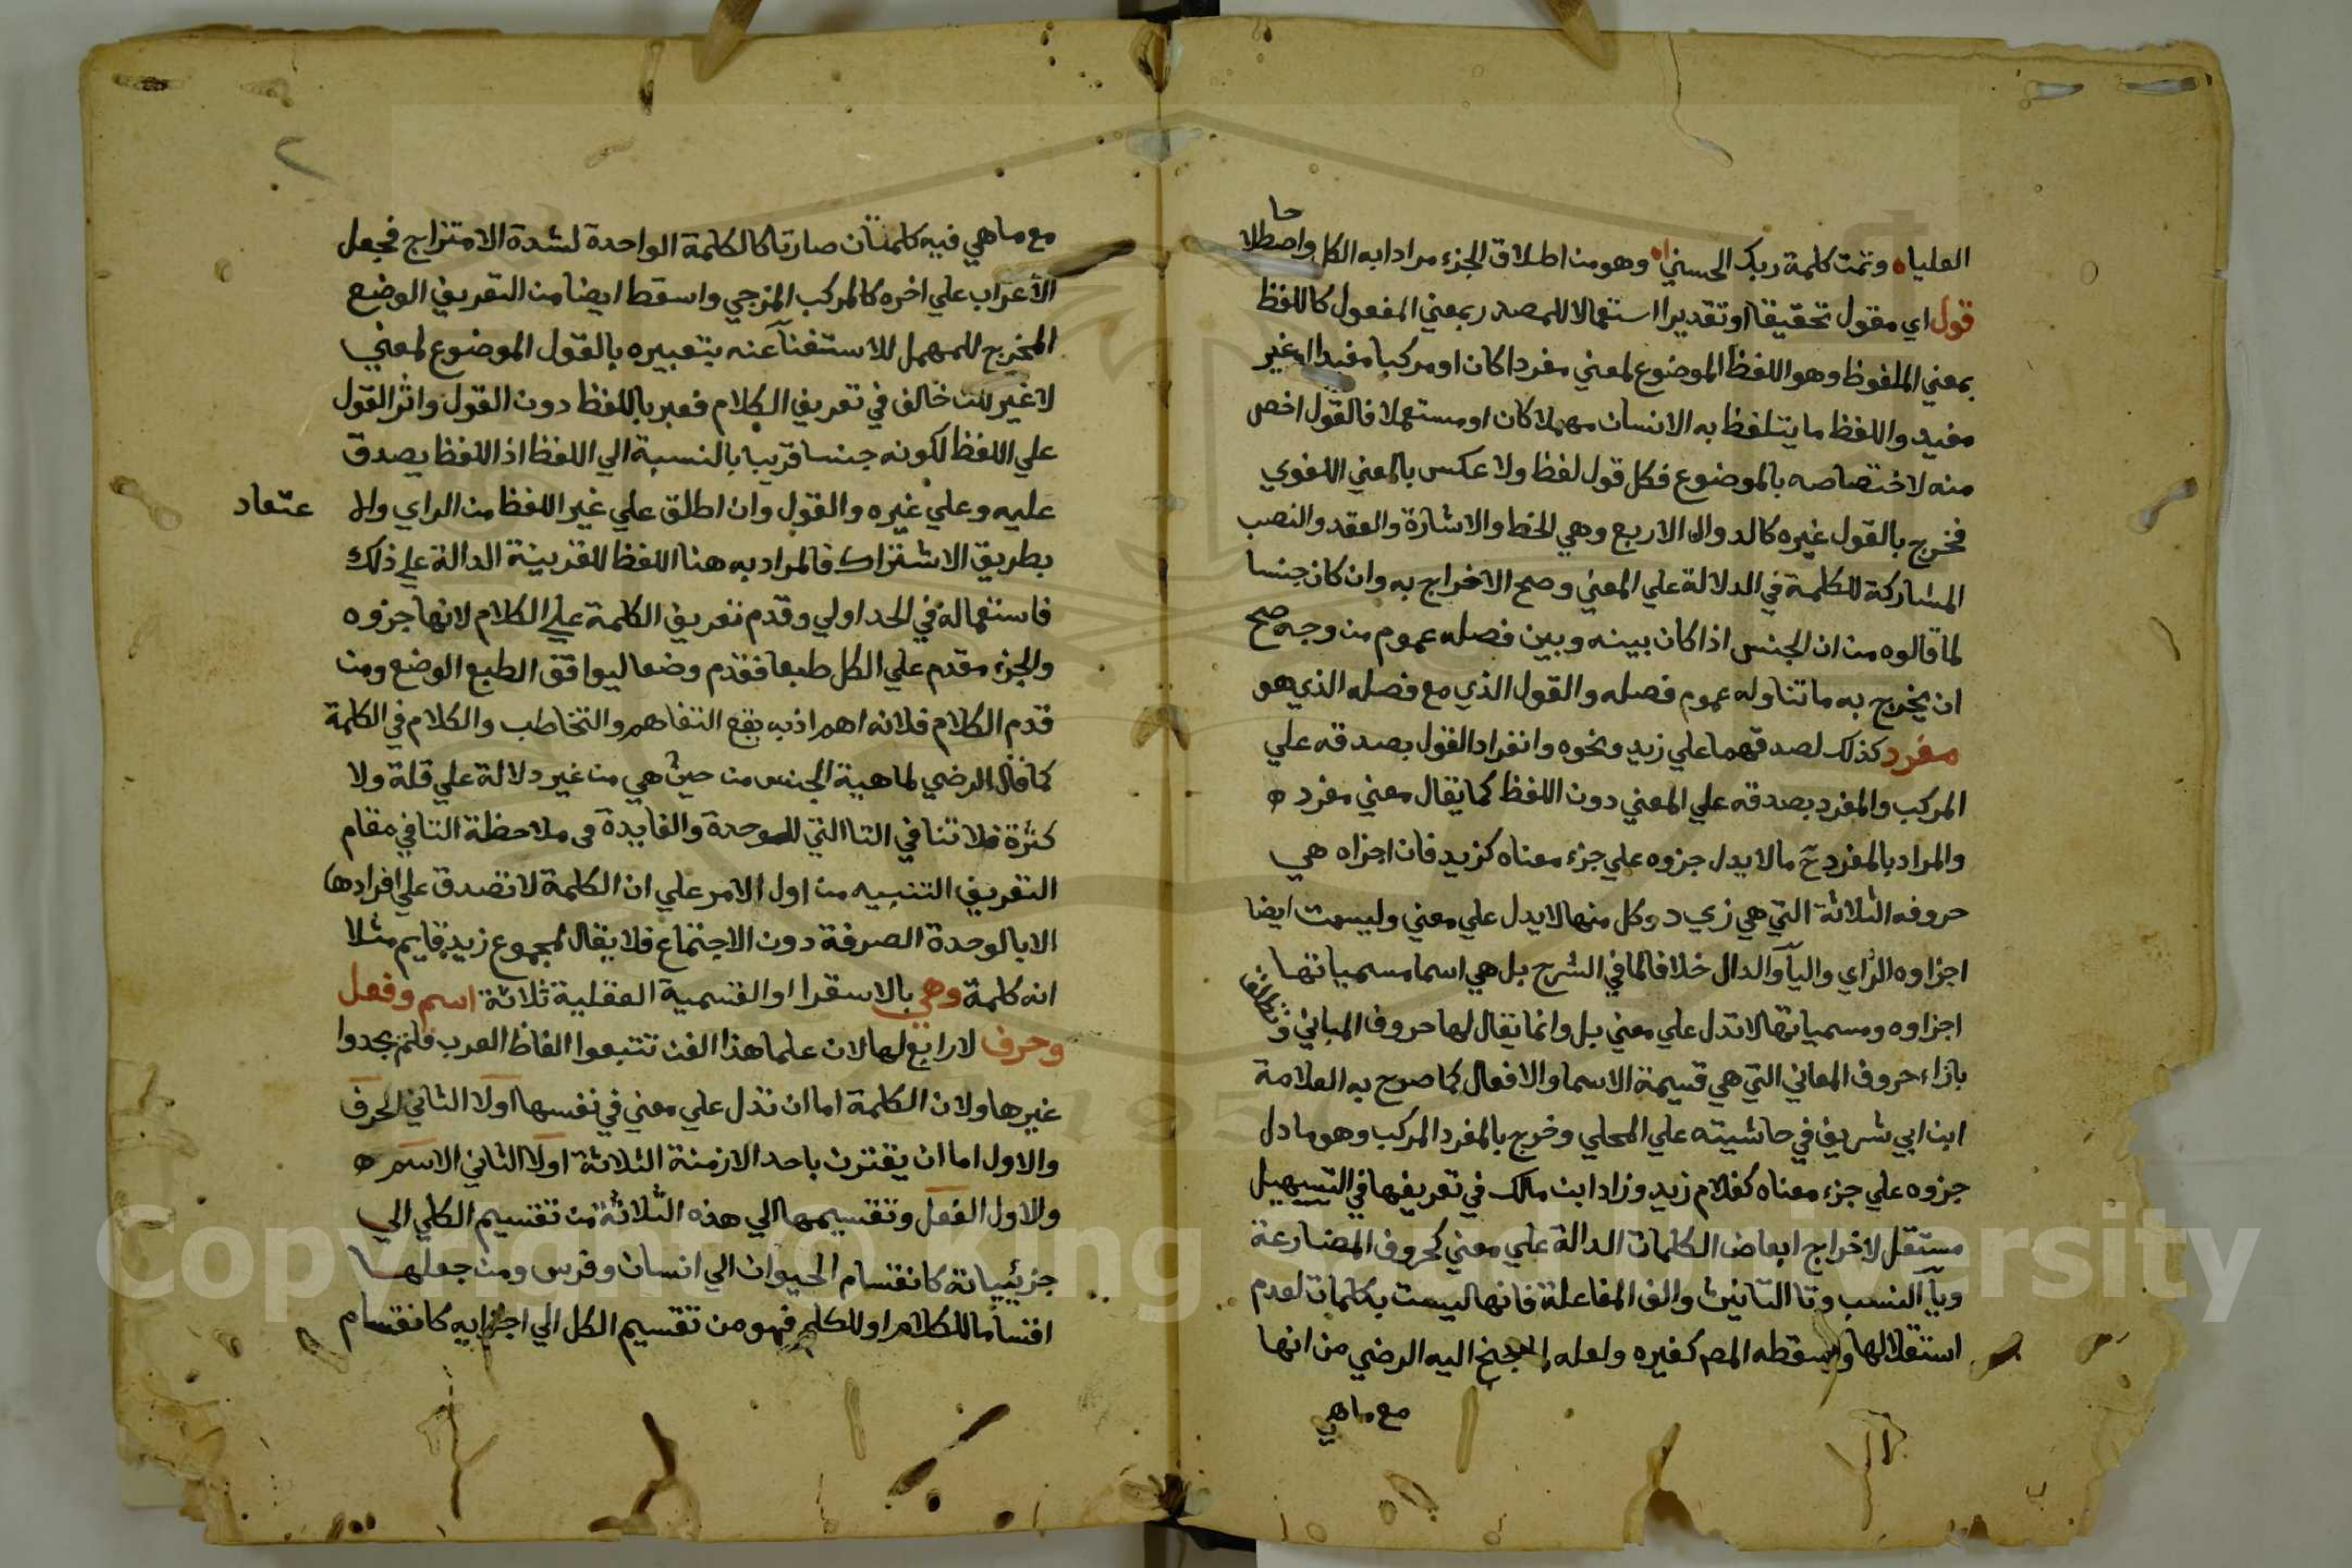 العليا ه وتمت كلمة ربك الحسني اه وهو من اطلاق الجزء مرادا به الكل واصطلا
حا
قول اي مقول تحقيقا او تقديرا استعمالا للمصدر بمعني المفعول كاللفظ
بمعني الملفوظ وهو اللفظ الموضوع لمعني مفردا كان او مركبا مفيدا او غير
مفيد واللفظ ما يتلفظ به الانسان مهملا كان او مستعملا فالقول اخص
منه لاختصاصه بالموضوع فكل قول لفظ ولا عكس بالمعني اللغوي
فخرج بالقول غيره كالدوال الاربع وهي الخط والاشارة والعقد والنصب
المشاركة للكلمة في الدلالة علي المعني وصح الاخراج به وان كان جنسا
لما قالوه من ان الجنس اذا كان بينه وبين فصله عموم من وجه صح
ان يخرج به ما تناوله عموم فصله والقول الذي مع فصله الذي هو
مفرد كذلك لصدقهما علي زيد ونحوه وانفراد القول بصدقه علي
المركب والمفرد بصدقه علي المعني دون اللفظ كما يقال معني مفرد ه
والمراد بالمفرد ح ما لا يدل جزوه علي جزء معناه كزيد فان اجزاه هي
حروفه الثلاثة التي هي زي د وكل منها لا يدل علي معني وليست ايضا
اجزاوه الزاي واليآ والدال خلافا لما في الشرح بل هي اسما مسمياتها
اجزاوه ومسمياتها لا تدل علي معني بل وانما يقال لها حروف المباني و
بازاء حروف المعاني التي هي قسيمة الاسما والافعال كما صرح به العلامة
ابن ابي شريف في حاشيته علي المحلي وخرج بالمفرد المركب وهو ما دل
جزوه علي جزء معناه كغلام زيد وزاد ابن مالك في تعريفها في التسهيل
مستقل لاخراج ابعاض الكلمات الدالة علي معني كحروف المضارعة
ويآ النسب وتا التانيث والف المفاعلة فانها ليست بكلمات لعدم
استقلالها واسقطه المص كغيره ولعله لما جنح اليه الرضي من انها
مع ما هي
٢
مع ما هي فيه كلمتان صارتا كالكلمة الواحدة لشدة الامتزاج فجعل
الاعراب علي اخره كالمركب المزجي واسقط ايضا من التعريف الوضع
المخرج للمهمل للاستغنآ عنه بتعبيره بالقول الموضوع لمعني
لا غير لكن خالف في تعريف الكلام فعبر باللفظ دون القول واثر القول
علي اللفظ لكونه جنسا قريبا بالنسبة الي اللفظ اذ اللفظ يصدق
عليه وعلي غيره والقول وان اطلق علي غير اللفظ من الراي والا عتقاد
بطريق الاشتراك فالمراد به هنا اللفظ للقرينة الدالة علي ذلك
فاستعماله في الحد اولي وقدم تعريف الكلمة علي الكلام لانها جزوه
والجزء مقدم علي الكل طبعا فقدم وضعا ليوافق الطبع الوضع ومن
قدم الكلام فلانه اهم اذ به يقع التفاهم والتخاطب والكلام في الكلمة
كما قال الرضي لماهية الجنس من حيث هي من غير دلالة علي قلة ولا
كثرة فلا تنافي التا التي للوحدة والفايدة في ملاحظة التا في مقام
التعريف التنبيه من اول الامر علي ان الكلمة لا تصدق علي افرادها
الا بالوحدة الصرفة دون الاجتماع فلا يقال لمجموع زيد قايم مثلا
انه كلمة وهي بالاسقرا او القسمية العقلية ثلاثة اسم وفعل
وحرف لا رابع لها لان علما هذا الفن تتبعوا الفاظ العرب فلم يجدوا
غيرها ولان الكلمة اما ان تدل علي معني في نفسها اولا الثاني الحرف
والاول اما ان يقترن باحد الازمنة الثلاثة اولا الثاني الاسم ه
والاول الفعل وتقسيمها الي هذه الثلاثة من تقسيم الكلي الي
جزئيياتة كانقسام الحيوان الي انسان وفرس ومن جعلها
اقساما للكلام او للكلم فهو من تقسيم الكل الي اجزايه كانقسام